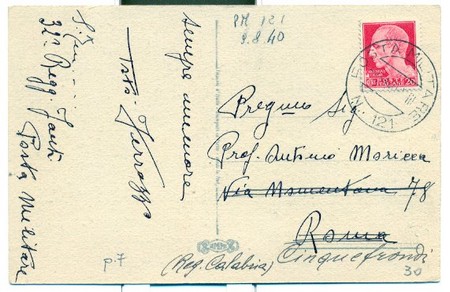 PM 121
9.8.40
Sempre memore
32º Regg. Fant.
Posta Militare
POSTA MILITARE
N. 121
Pregmo Sig
Prof. Antonio Moricca
Via Nomentana 78
Roma
Cinquefrondi
(Reg. Calabria)
p.7
30